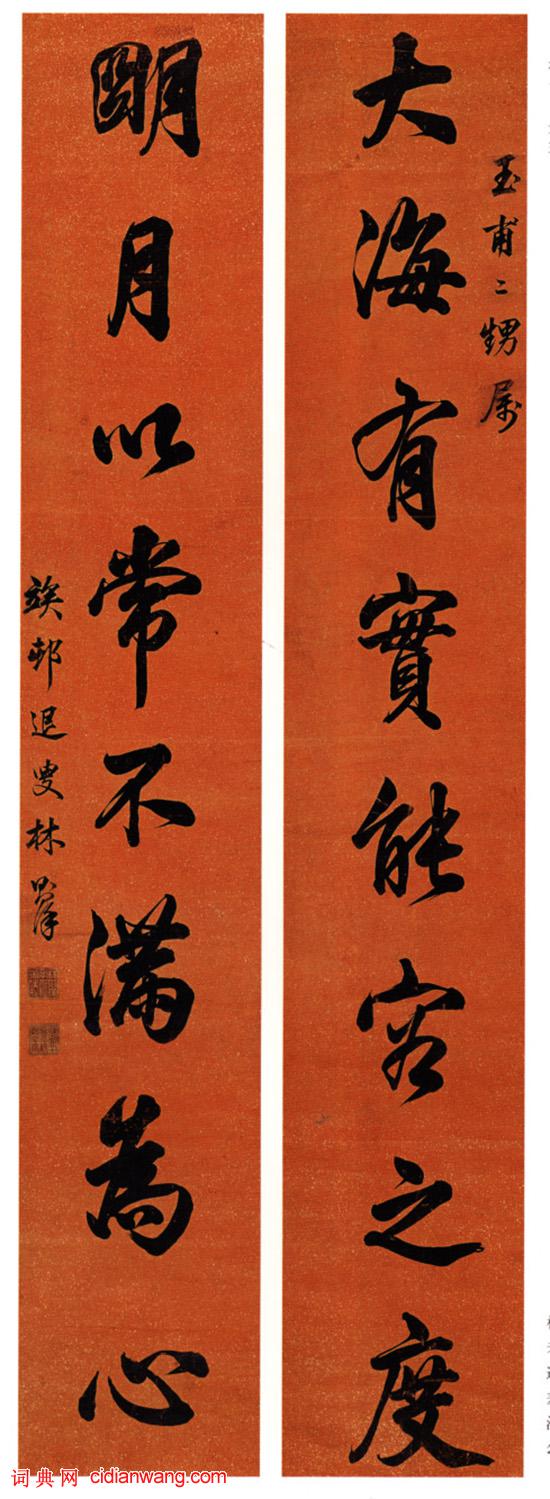 玉甫二甥属
大海有實能容之度
朙月以常不滿為心
竢邨退叟林則徐
词典网 cidianwang.com